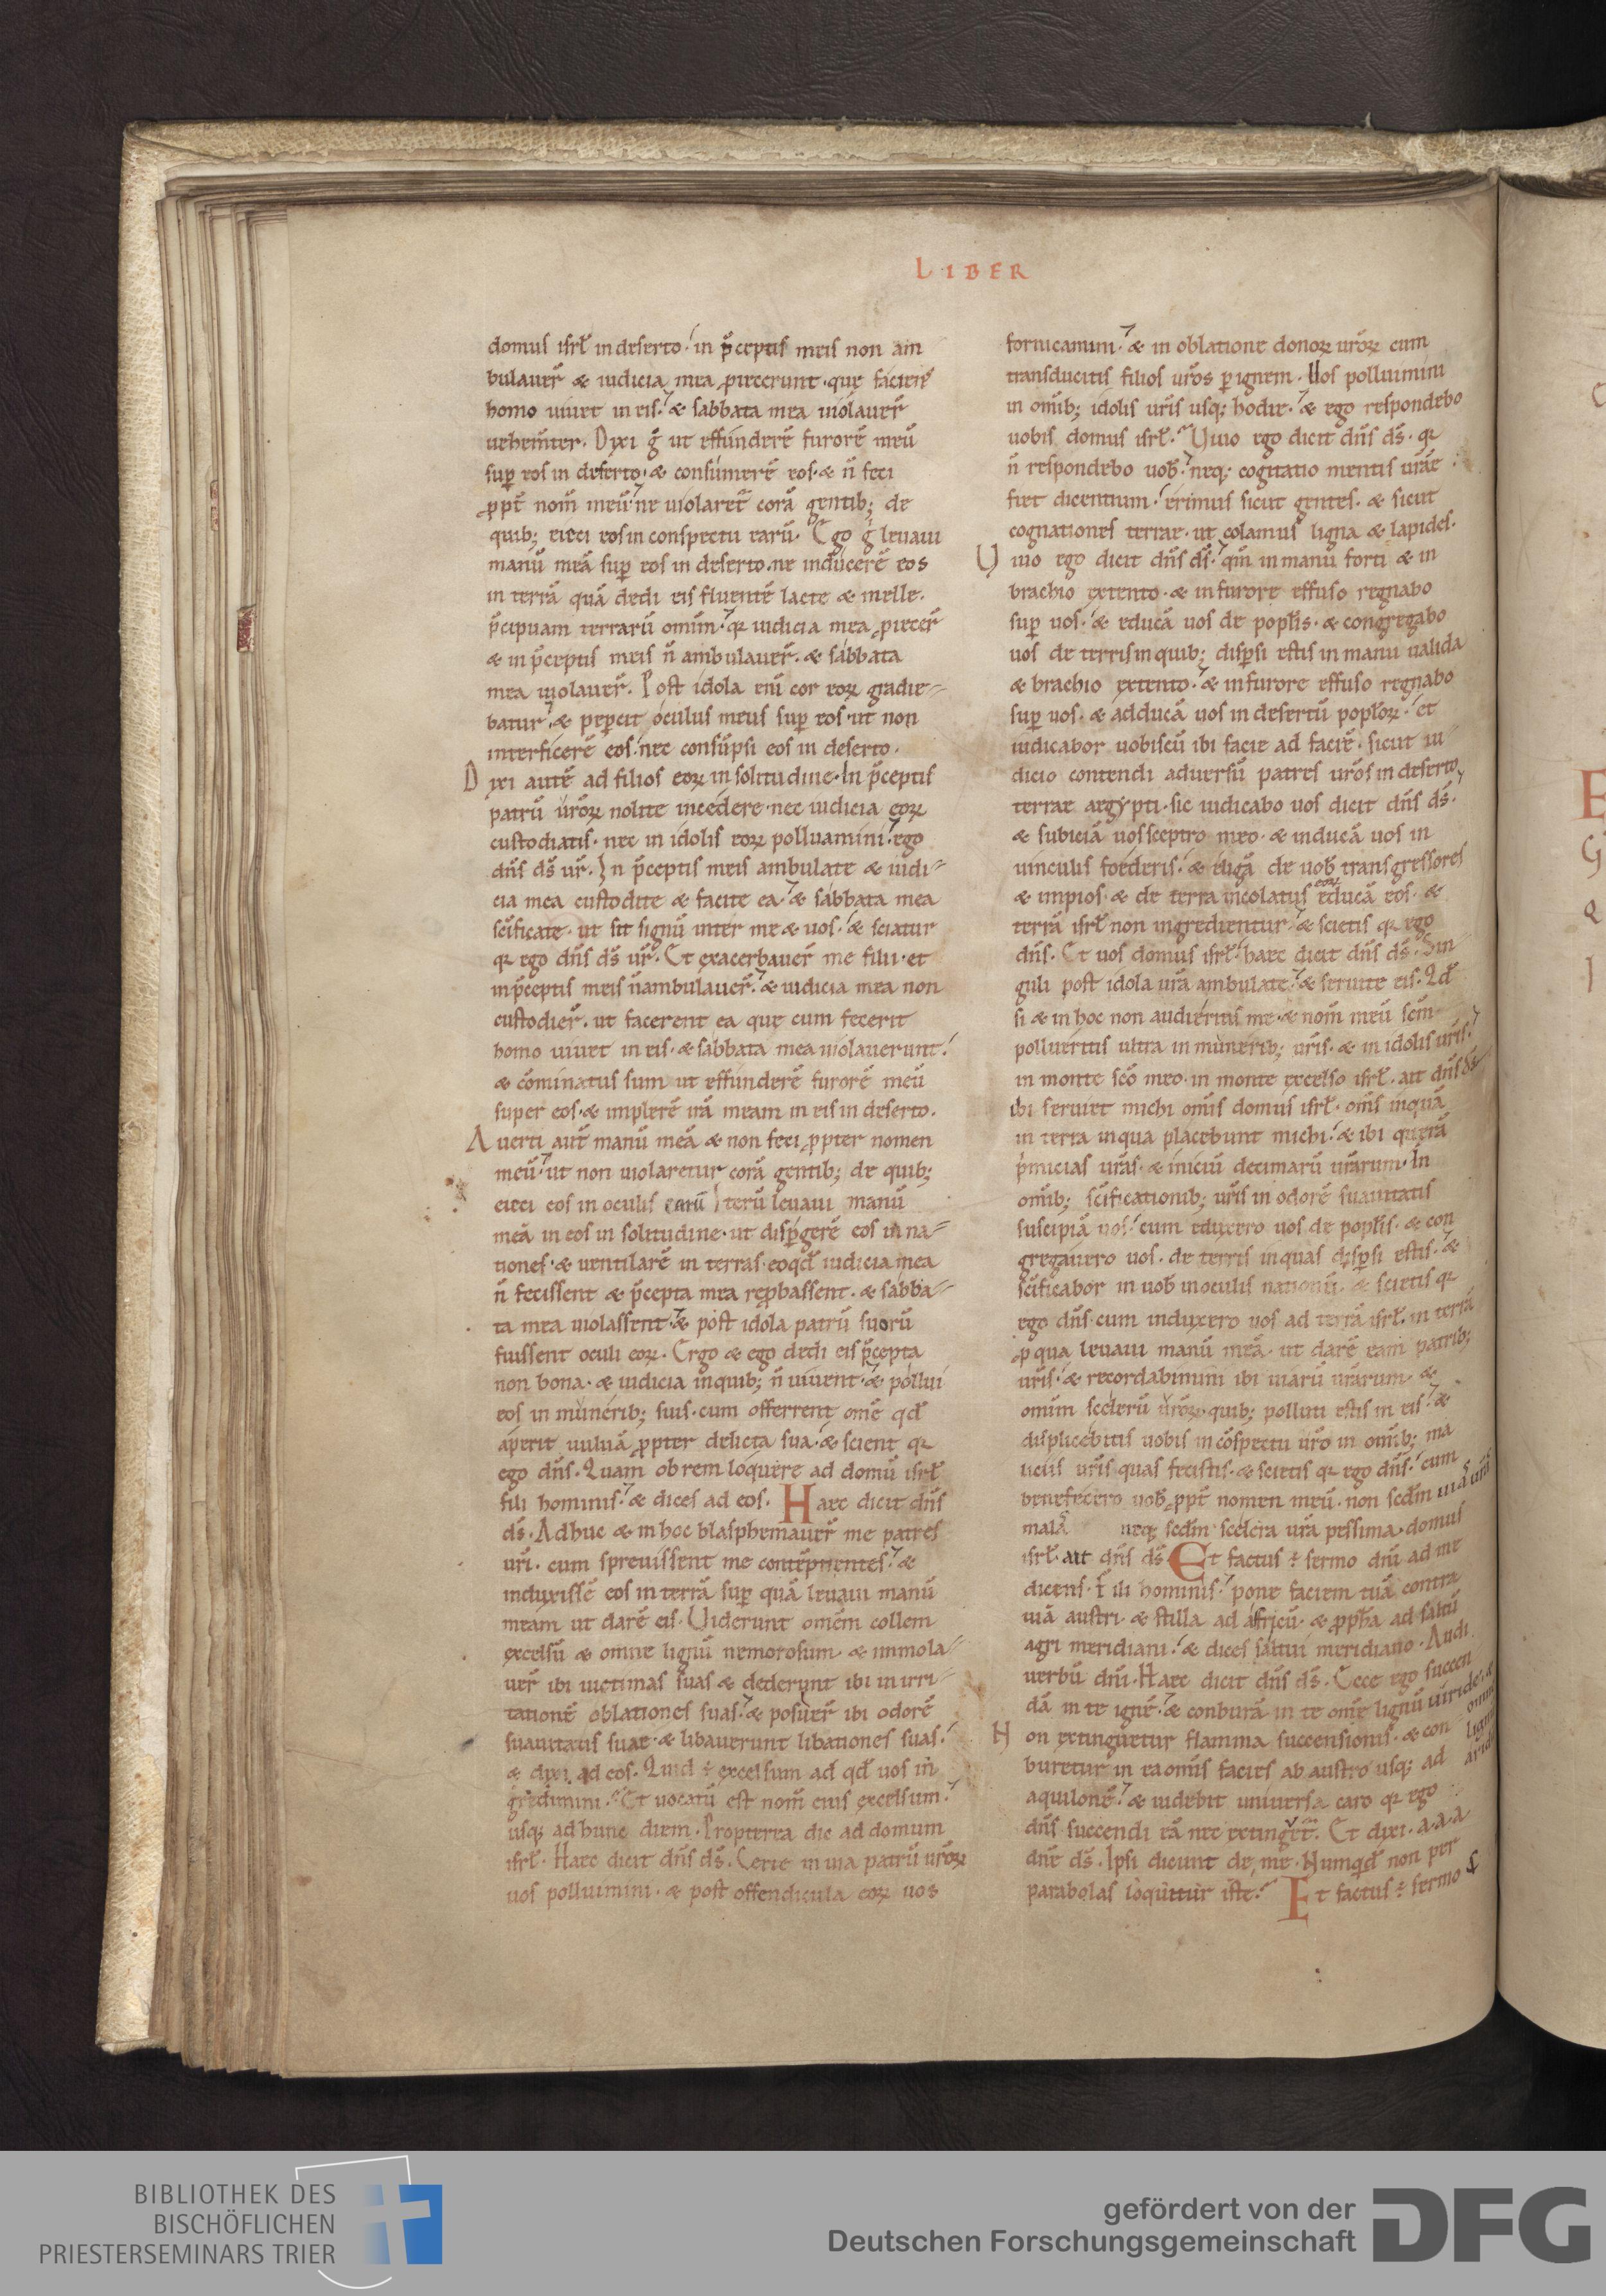 LIBER
domus isrł in deserto. in p̄ceptis meis non am
bulauer̄ & iudicia mea ꝓiecerunt. que faciens
homo uiuet in eis. & sabbata mea uiolauer̄
uehem̄ter. Dixi g̊ ut effunderē furorē meū
sup̄ eos in deserto. & consumerē eos. & n̄ feci
ꝓpt̄ nom̄ meū. ne uiolaret̄ corā gentib; de
quib; eieci eos in conspectu earū. Ego g̊ leuaui
manū meā sup̄ eos in deserto. ne inducerē eos
in terrā quā dedi eis fluentē lacte & melle.
p̄cipuam terrarū omiūm. qꝛ iudicia mea ꝓiecer̄
& in p̄ceptis meis n̄ ambulauer̄. & sabbata
mea uiolauer̄. Post idola eni cor eoꝝ gradie-
batur. & peꝑcit oculus meus sup̄ eos. ut non
interficerē eos. nec consūpsi eos in deserto.
Dixi autē ad filios eoꝝ in solitudine. In p̄ceptis
patrū ūroꝝ nolite incedere. nec iudicia eoꝝ
custodiatis. nec in idolis eoꝝ polluamini. ego
dn̄s ds̄ ur̄. In p̄ceptis meis ambulate & iudi-
cia mea custodite & facite ea. & sabbata mea
sc̄ificate. ut sit signū inter me & uos. & sciatur
qꝛ ego dn̄s ds̄ ur̄. Et exacerbauer̄ me filii. et
in p̄ceptis meis n̄ ambulauer̄. & iudicia mea non
custodier̄. ut facerent ea que cum fecerit
homo uiuet in eis. & sabbata mea uiolauerunt.
& cōminatus sum ut effunderē furorē meū
super eos. & implerē irā meam in eis in deserto.
Auerti aut̄ manū meā & non feci ꝓpter nomen
meū. ut non uiolaretur corā gentib; de quib;
eieci eos in oculis earū Iterū leuaui manū
meā in eos in solitudine. ut disꝑgerē eos in na-
tiones. & uentilarē in terras. eoqd̄ iudicia mea
n̄ fecissent & p̄cepta mea reꝓbassent. & sabba-
ta mea uiolassent. & post idola patrū suorū
fuissent oculi eoꝝ. Ergo & ego dedi eis p̄cepta
non bona. & iudicia in quib; n̄ uiuent. & pollui
eos in munerib; suis. cum offerrent omē qd̄
aperit uuluā ꝓpter delicta sua. & scient qꝛ
ego dn̄s. Quam ob rem loquere ad domū isrł
fili hominis. & dices ad eos. Haec dicit dn̄s
ds̄. Adhuc & in hoc blasphemauer̄ me patres
uri. cum spreuissent me contēpnentes. &
induxissē eos in terrā sup̄ quā leuaui manū
meam ut darē eis. Uiderunt omēm collem
excelsū & omne lignū nemorosum & immola-
uer̄ ibi uictimas suas & dederunt ibi in irri-
tationē oblationes suas. & posuer̄ ibi odorē
suauitatis suae. & libauerunt libationes suas.
& dixi ad eos. Quid ÷ excelsum ad qd̄ uos in
gredimini. Et uocatū est nom̄ eius excelsum.
usq; ad hunc diem. Propterea dic ad domum
isrł. Haec dicit dn̄s ds̄. Certe in uia patrū ur̄oꝝ
uos polluimini. & post offendicula eoꝝ uos
fornicamini. & in oblatione donoꝝ ur̄oꝝ cum
transducitis filios ur̄os ꝑ ignem. Uos polluimini
in omib; idolis ur̄is usq; hodie. & ego respondebo
uobis domus isrł. Uiuo ego dicit dn̄s ds̄. qꝛ
n̄ respondebo uob̄. neq; cogitatio mentis ur̄ae
fiet dicentium. erimus sicut gentes. & sicut
cognationes terrae. ut colamus ligna & lapides.
Uiuo ego dicit dn̄s ds̄. qm̄ in manu forti & in
brachio extento. & in furore effuso regnabo
sup̄ uos. & educā uos de popłis. & congregabo
uos de terris in quib; disꝑsi estis in manu ualida
& brachio extento. & in furore effuso regnabo
sup̄ uos. & adducā uos in desertū popłoꝝ. et
iudicabor uobiscū ibi facie ad faciē. sicut iu
dicio contendi aduersū patres ur̄os in deserto
terrae aegypti. sic iudicabo uos dicit dn̄s ds̄.
& subiciā uos sceptro meo. & inducā uos in
uinculis foederis. & eligā de uob̄ transgressores
& impios. & de terra incolatus eoꝝ educā eos. &
terrā isrł non ingredientur. & scietis qꝛ ego
dn̄s. Et uos domus isrł. haec dicit dn̄s ds̄. Sin
guli post idola ur̄a ambulate. & seruite eis. Qd̄
si & in hoc non audieritis me. & nom̄ meū sc̄m
pollueritis ultra in munerib; ur̄is. & in idolis ur̄is.
in monte sc̄o meo. in monte excelso isrł. ait dn̄s ds̄
ibi seruiet michi om̄is domus isrł. om̄s inquā
in terra in qua placebunt michi. & ibi querā
p̄micias ur̄as. & iniciū decimarū ur̄arum. In
omib; sc̄ificationib; ur̄is in odorē suauitatis
suscipiā uos. cum eduxero uos de popłis. & con
gregauero uos. de terris in quas disꝑsi estis. &
sc̄ificabor in uob̄ in oculis nationū. & scietis qꝛ
ego dn̄s. cum induxero uos ad terrā isrł. in terrā
ꝓ qua leuaui manū meā. ut darē eam patrib;
ur̄is. & recordabimini ibi uiarū ur̄arum &
omiūm scelerū ur̄oꝝ. quib; polluti estis in eis. &
displicebitis uobis in cōspectu ur̄o in omib; ma
liciis ur̄is quas fecistis. & scietis qꝛ ego dn̄s. cum
benefecero uob̄ ꝓpt̄ nomen meū. non scd̄m uias ur̄as
malas neq; scd̄m scelera ur̄a pessima. domus
isrł. ait dn̄s ds̄. Et factus ÷ sermo dn̄i ad me
dicens. Fili hominis. pone faciem tuā contra
uiā austri. & stilla ad africū. & ꝓph̄a ad saltū
agri meridiani. & dices saltui meridiano. Audi
uerbū dn̄i. Haec dicit dn̄s ds̄. Ecce ego succen
dā in te ignē. & conburā in te omē lignū uiride. & omne lignū aridū
Non extinguetur flamma succensionis. & con
buretur in ea om̄is facies ab austro usq; ad
aquilonē. & uidebit uniuersa caro qꝛ ego
dn̄s succendi eā nec extinguet̄. Et dixi. a.a.a
dn̄e ds̄. Ipsi dicunt de me. Numqd̄ non per
parabolas loquitur iste. Et factus ÷ sermo
BIBLIOTHEK DES
BISCHÖFLICHEN
PRIESTERSEMINARS TRIER
gefördert von der
Deutschen Forschungsgemeinschaft
DFG